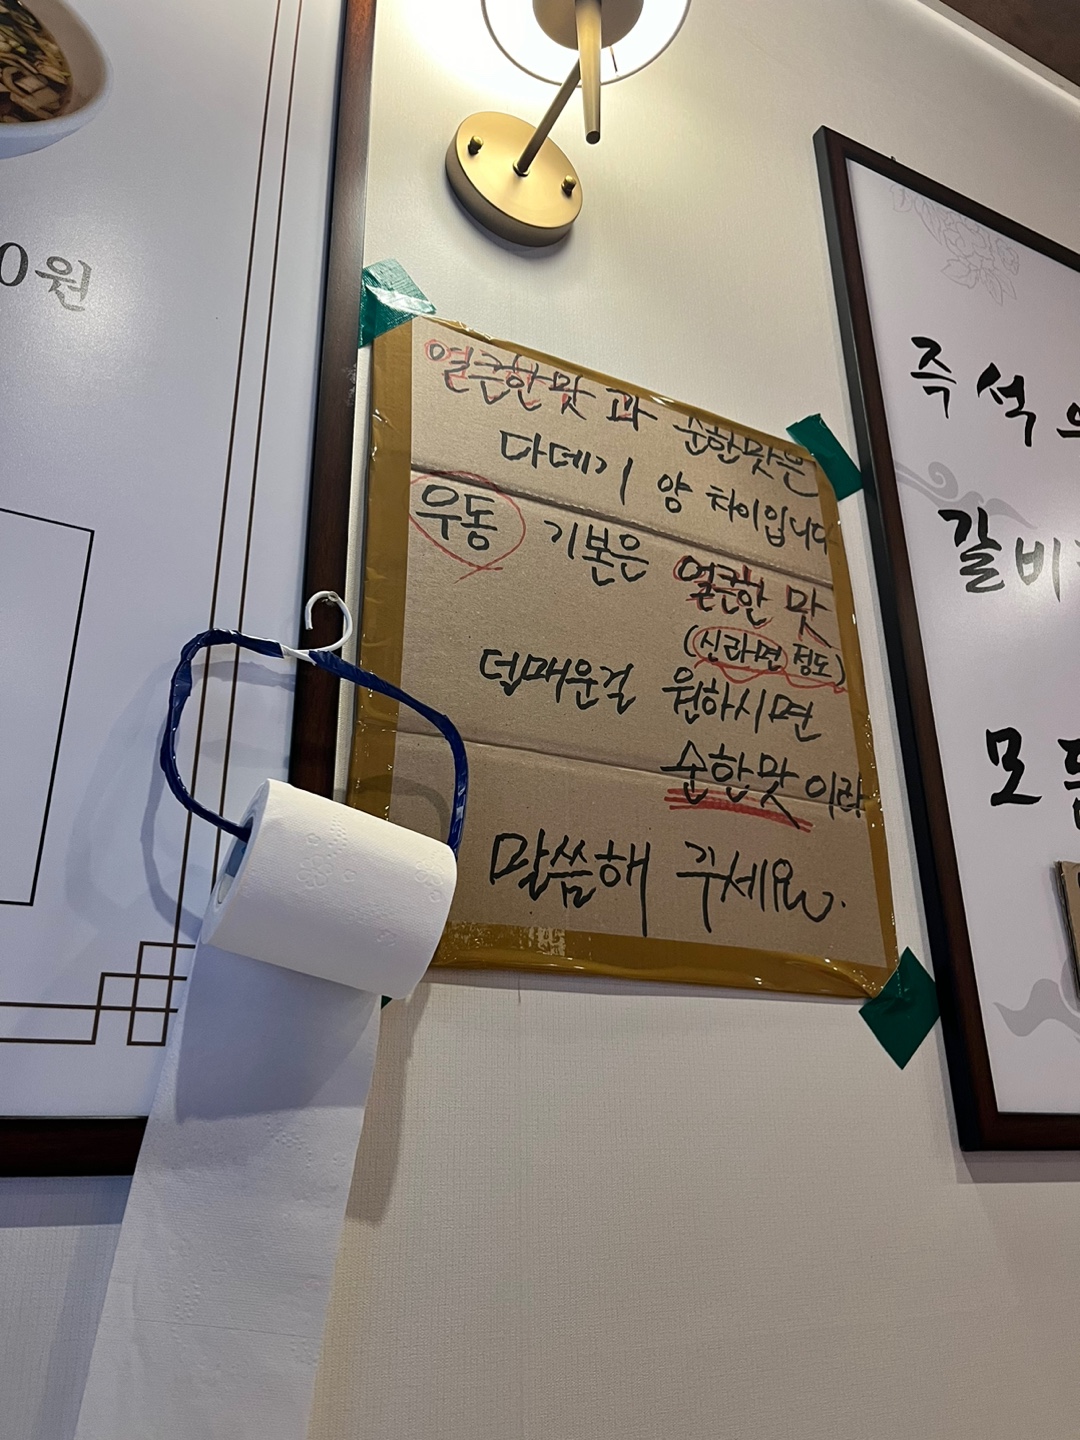 0원
얼큰한맛 과 순한맛은
다데기 양 차이입니다
우동 기본은 얼큰한 맛
(신라면 정도)
덜매운걸 원하시면
순한맛 이라
말씀해 주세요.
즉석
갈비
모